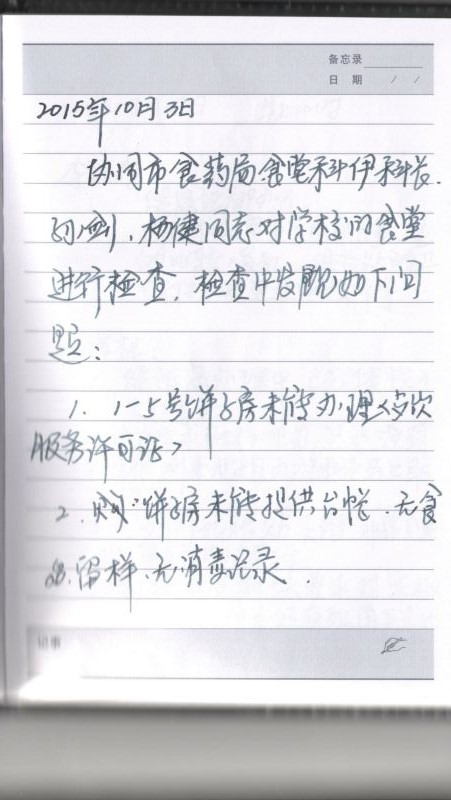 备忘录
日 期 / /
2015年10月3日
协同市食药局食堂科伊科长.
杨健同志对学校的食堂
进行检查,检查中发现如下问
题:
1. 1-5号饼子房未能办理《餐饮
服务许可证》
2. 饼子房未能提供台帐.无食
品留样.无消毒记录.
记事